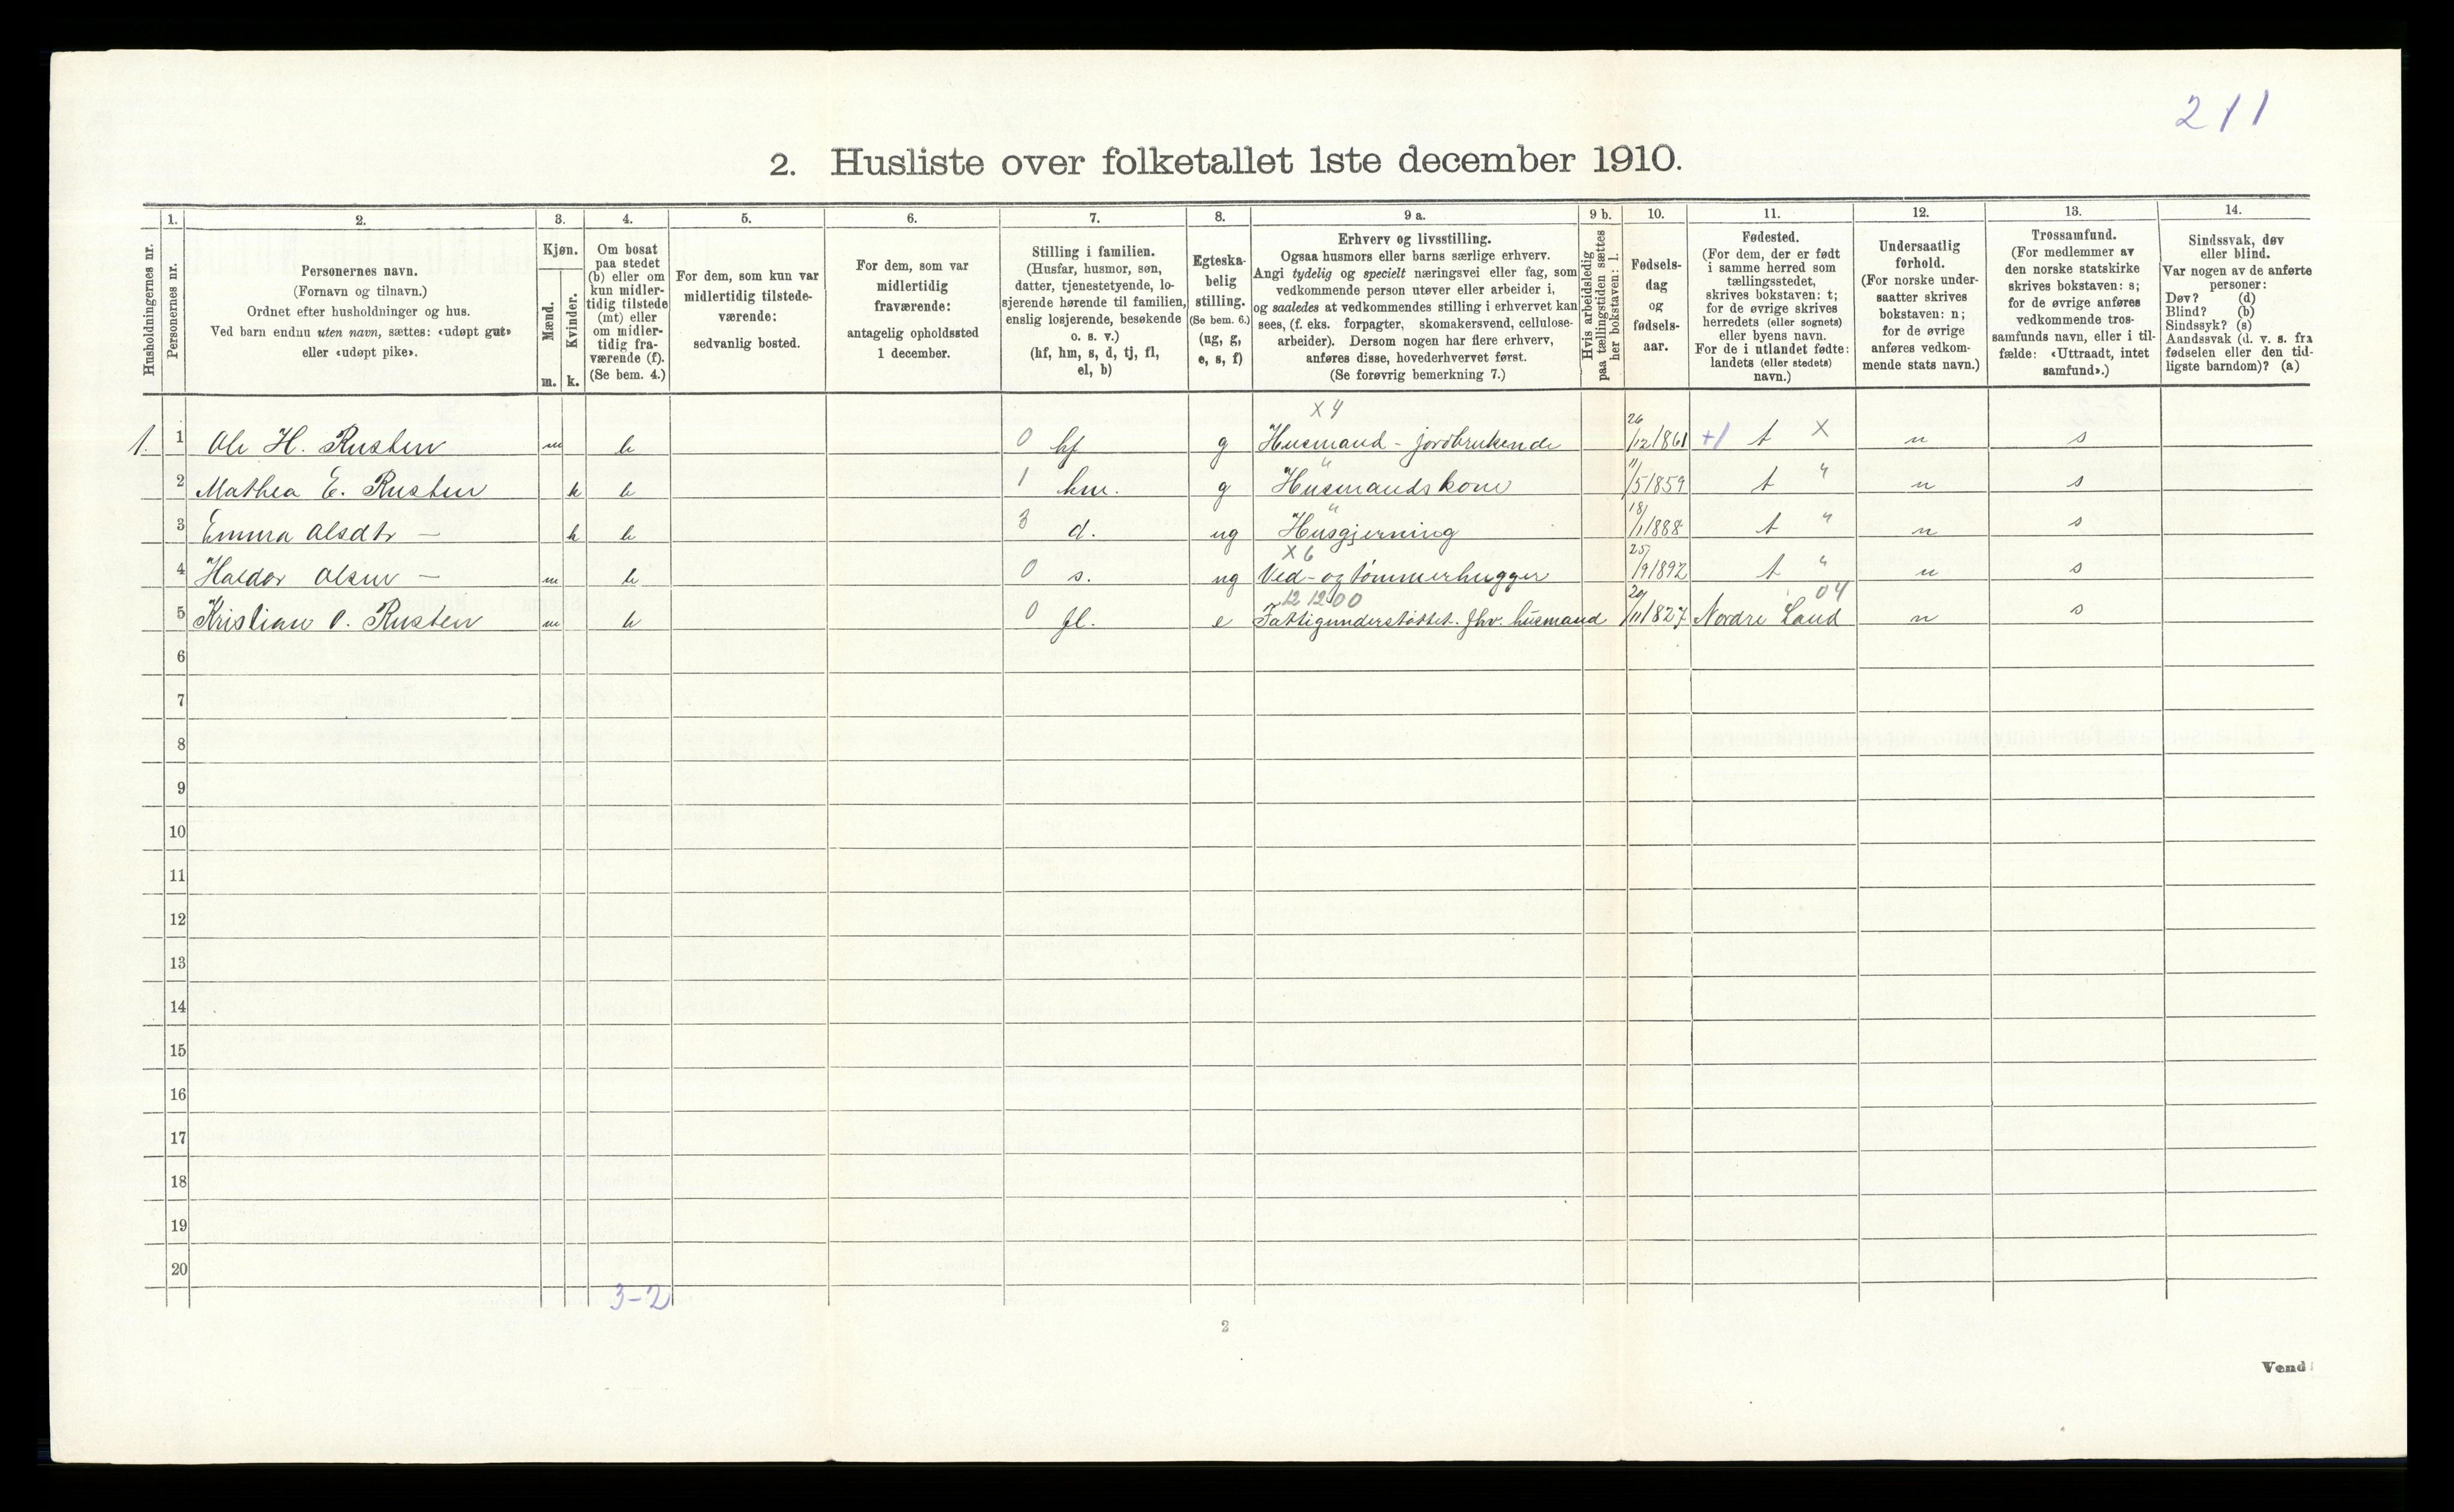 211
2. Husliste over folketallet 1ste december 1910.
Husholdningernes nr.
1.
Personernes nr.
2.
Personernes navn.
(Fornavn og tilnavn.)
Ordnet efter husholdninger og hus.
Ved barn endnu uten navn, sættes: «udøpt gut»
eller «udøpt pike».
3.
Kjøn.
Mænd.
Kvinder.
m.
k.
4.
Om bosat
paa stedet
(b) eller om
kun midler-
tidig tilstede
(mt) eller
om midler-
tidig fra-
værende (f).
(Se bem. 4.)
5.
For dem, som kun var
midlertidig tilstede-
værende:
sedvanlig bosted.
6.
For dem, som var
midlertidig
fraværende:
antagelig opholdssted
1 december.
7.
Stilling i familien.
(Husfar, husmor, søn,
datter, tjenestetyende, lo-
sjerende hørende til familien,
enslig losjerende, besøkende
o. s. v.)
(hf, hm, s, d, tj, fl,
el, b)
8.
Egteska-
belig
stilling.
(Se bem. 6.)
(ug, g,
e, s, f)
9 a.
Erhverv og livsstilling.
Ogsaa husmors eller barns særlige erhverv.
Angi tydelig og specielt næringsvei eller fag, som
vedkommende person utøver eller arbeider i,
og saaledes at vedkommendes stilling i erhvervet kan
sees, (f. eks. forpagter, skomakersvend, cellulose-
arbeider). Dersom nogen har flere erhverv,
anføres disse, hovederhvervet først.
(Se forøvrig bemerkning 7.)
9 b.
Hvis arbeidsledig
paa tællingstiden sættes
her bokstaven: l.
10.
Fødsels-
dag
og
fødsels-
aar.
11.
Fødested.
(For dem, der er født
i samme herred som
tællingsstedet,
skrives bokstaven: t;
for de øvrige skrives
herredets (eller sognets)
eller byens navn.
For de i utlandet fødte:
landets (eller stedets)
navn.)
12.
Undersaatlig
forhold.
(For norske under-
saatter skrives
bokstaven: n;
for de øvrige
anføres vedkom-
mende stats navn.)
13.
Trossamfund.
(For medlemmer av
den norske statskirke
skrives bokstaven: s;
for de øvrige anføres
vedkommende tros-
samfunds navn, eller i til-
fælde: «Uttraadt, intet
samfund».)
14.
Sindssvak, døv
eller blind.
Var nogen av de anførte
personer:
Døv? (d)
Blind? (b)
Sindssyk? (s)
Aandssvak (d. v. s. fra
fødselen eller den tid-
ligste barndom)? (a)
X 4
1. 1 Ole H. Rusten m b 0 hf g Husmand - jordbrukende 26/12 1861 +1 t X n s
2 Mathea E. Rusten k b 1 hm. g " Husmandskone 11/5 1859 t " n s
3 Emma Olsdtr — k b 3 d. ug " Husgjerning 18/1 1888 t " n s
X 6
4 Haldor Olsen — m b 0 s. ug Ved- og tømmerhugger 25/9 1892 t " n s
12 1200 04
5 Kristian O. Rusten m b 0 fl. e Fattigunderstøttet. fhv. husmand 20/11 1827 Nordre Land n s
6
7
8
9
10
11
12
13
14
15
16
17
18
19
20
3-2
2
Vend!